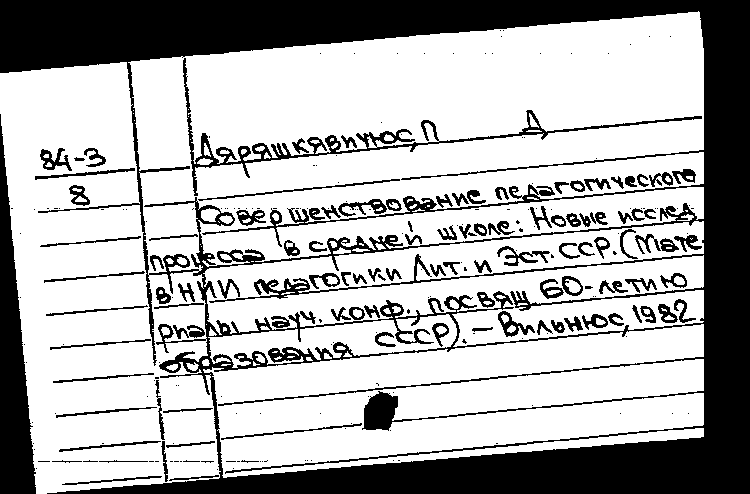 84-3
8
Дяряшкявичюс, П Д
Совершенствование педагогического
процесса в средней школе: Новые исслед.
в НИИ педагогики Лит. и Эст. ССР. (Мате-
риалы науч. конф., посвящ 60-летию
образования СССР). – Вильнюс, 1982.